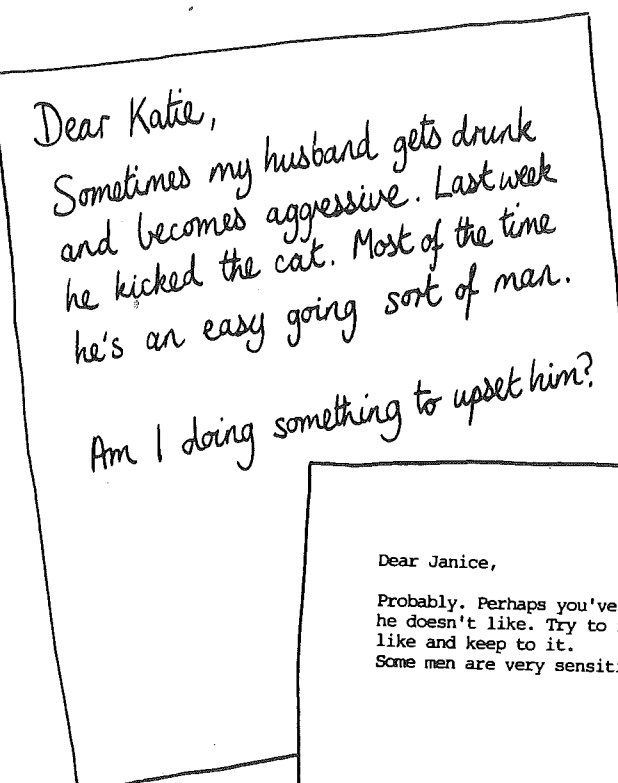 Dear Katie,
Sometimes my husband gets drunk
and becomes aggressive. Last week
he kicked the cat. Most of the time
he's an easy going sort of man.
Am I doing something to upset him?
Dear Janice,
Probably. Perhaps you've
he doesn't like. Try to
like and keep to it.
Some men are very